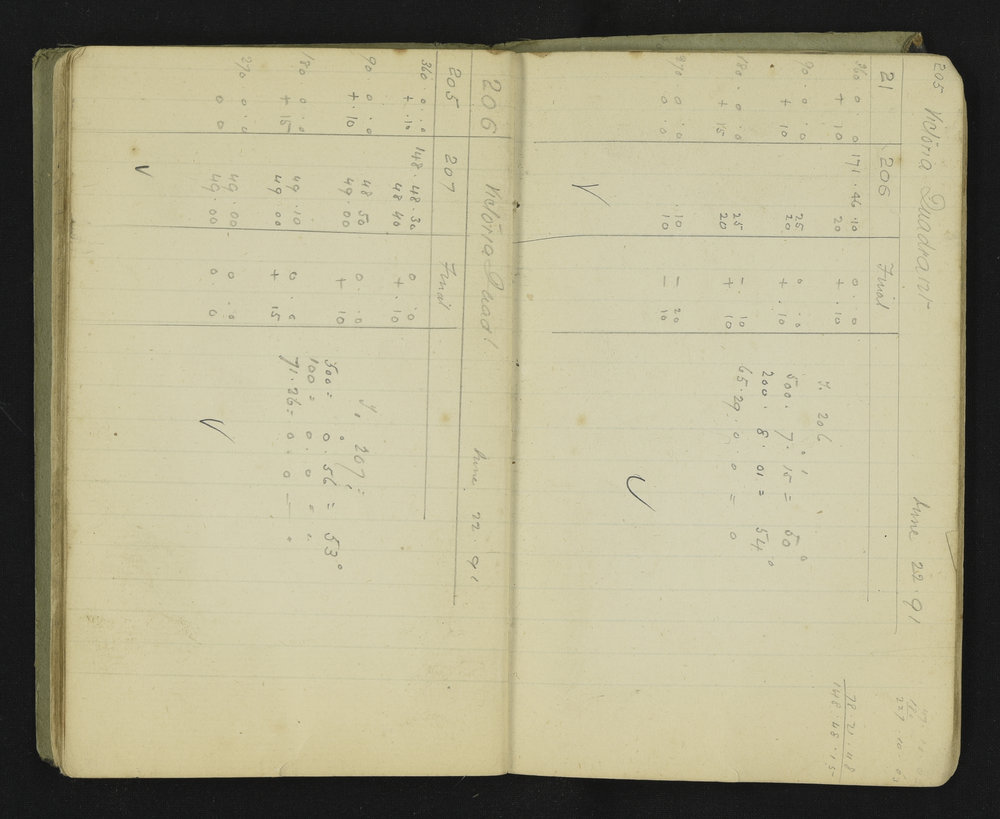 205 Victoria Quadrant June 22. 91
21 206 Final
360 0 0 171.46.10 0 . 0
+ 10 20 + . 10
90 0 0 25 0 . 0
+ 10 20 + . 10
180 . 0 . 0 25 - 10
+ 15 20 + 10
270 0 . 0 . 10 - 20
0 . 0 10 - 10
206
500. 7. 15 = 50°
200. 8. 01 = 54°
65.29. 0. 0 = 0
78.21.48
148.48.15
206 Victoria Quad June 22. 91
205 207 Final
360 . 0 . 0 148 48.30 0 . 0
+ . 10 48 40 + . 10
90 0 . 0 48 50 0 . 0
+ 10 49.00 + 10
180 0 . 0 49.10 0 . 0
+ 15 49 00 + 15
270 0 . 0 49.00 0 . 0
0 0 49.00 0 0
207
500 = 0. 56 = 53°
100 = 0. 0 . .
71.26 = 0. 0 — .